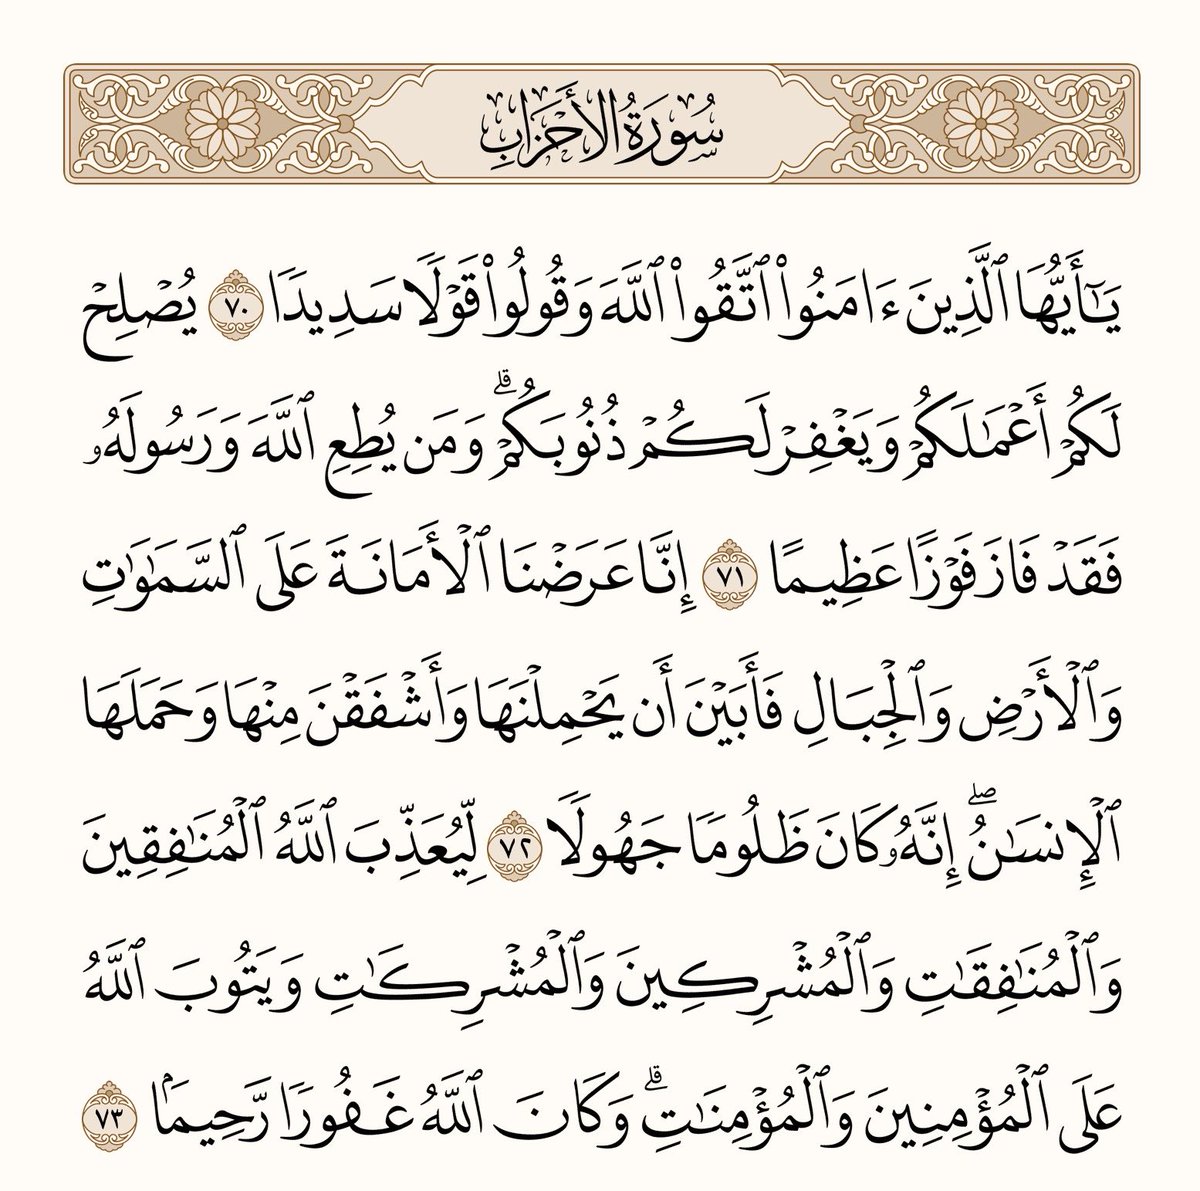 سُورَةُ الأَحْزَابِ
يَـٰٓأَيُّهَا ٱلَّذِينَ ءَامَنُوا۟ ٱتَّقُوا۟ ٱللَّهَ وَقُولُوا۟ قَوْلًا سَدِيدًا ٧٠ يُصْلِحْ
لَكُمْ أَعْمَـٰلَكُمْ وَيَغْفِرْ لَكُمْ ذُنُوبَكُمْ ۗ وَمَن يُطِعِ ٱللَّهَ وَرَسُولَهُۥ
فَقَدْ فَازَ فَوْزًا عَظِيمًا ٧١ إِنَّا عَرَضْنَا ٱلْأَمَانَةَ عَلَى ٱلسَّمَـٰوَٰتِ
وَٱلْأَرْضِ وَٱلْجِبَالِ فَأَبَيْنَ أَن يَحْمِلْنَهَا وَأَشْفَقْنَ مِنْهَا وَحَمَلَهَا
ٱلْإِنسَـٰنُ ۖ إِنَّهُۥ كَانَ ظَلُومًا جَهُولًا ٧٢ لِّيُعَذِّبَ ٱللَّهُ ٱلْمُنَـٰفِقِينَ
وَٱلْمُنَـٰفِقَـٰتِ وَٱلْمُشْرِكِينَ وَٱلْمُشْرِكَـٰتِ وَيَتُوبَ ٱللَّهُ
عَلَى ٱلْمُؤْمِنِينَ وَٱلْمُؤْمِنَـٰتِ ۗ وَكَانَ ٱللَّهُ غَفُورًا رَّحِيمًۢا ٧٣